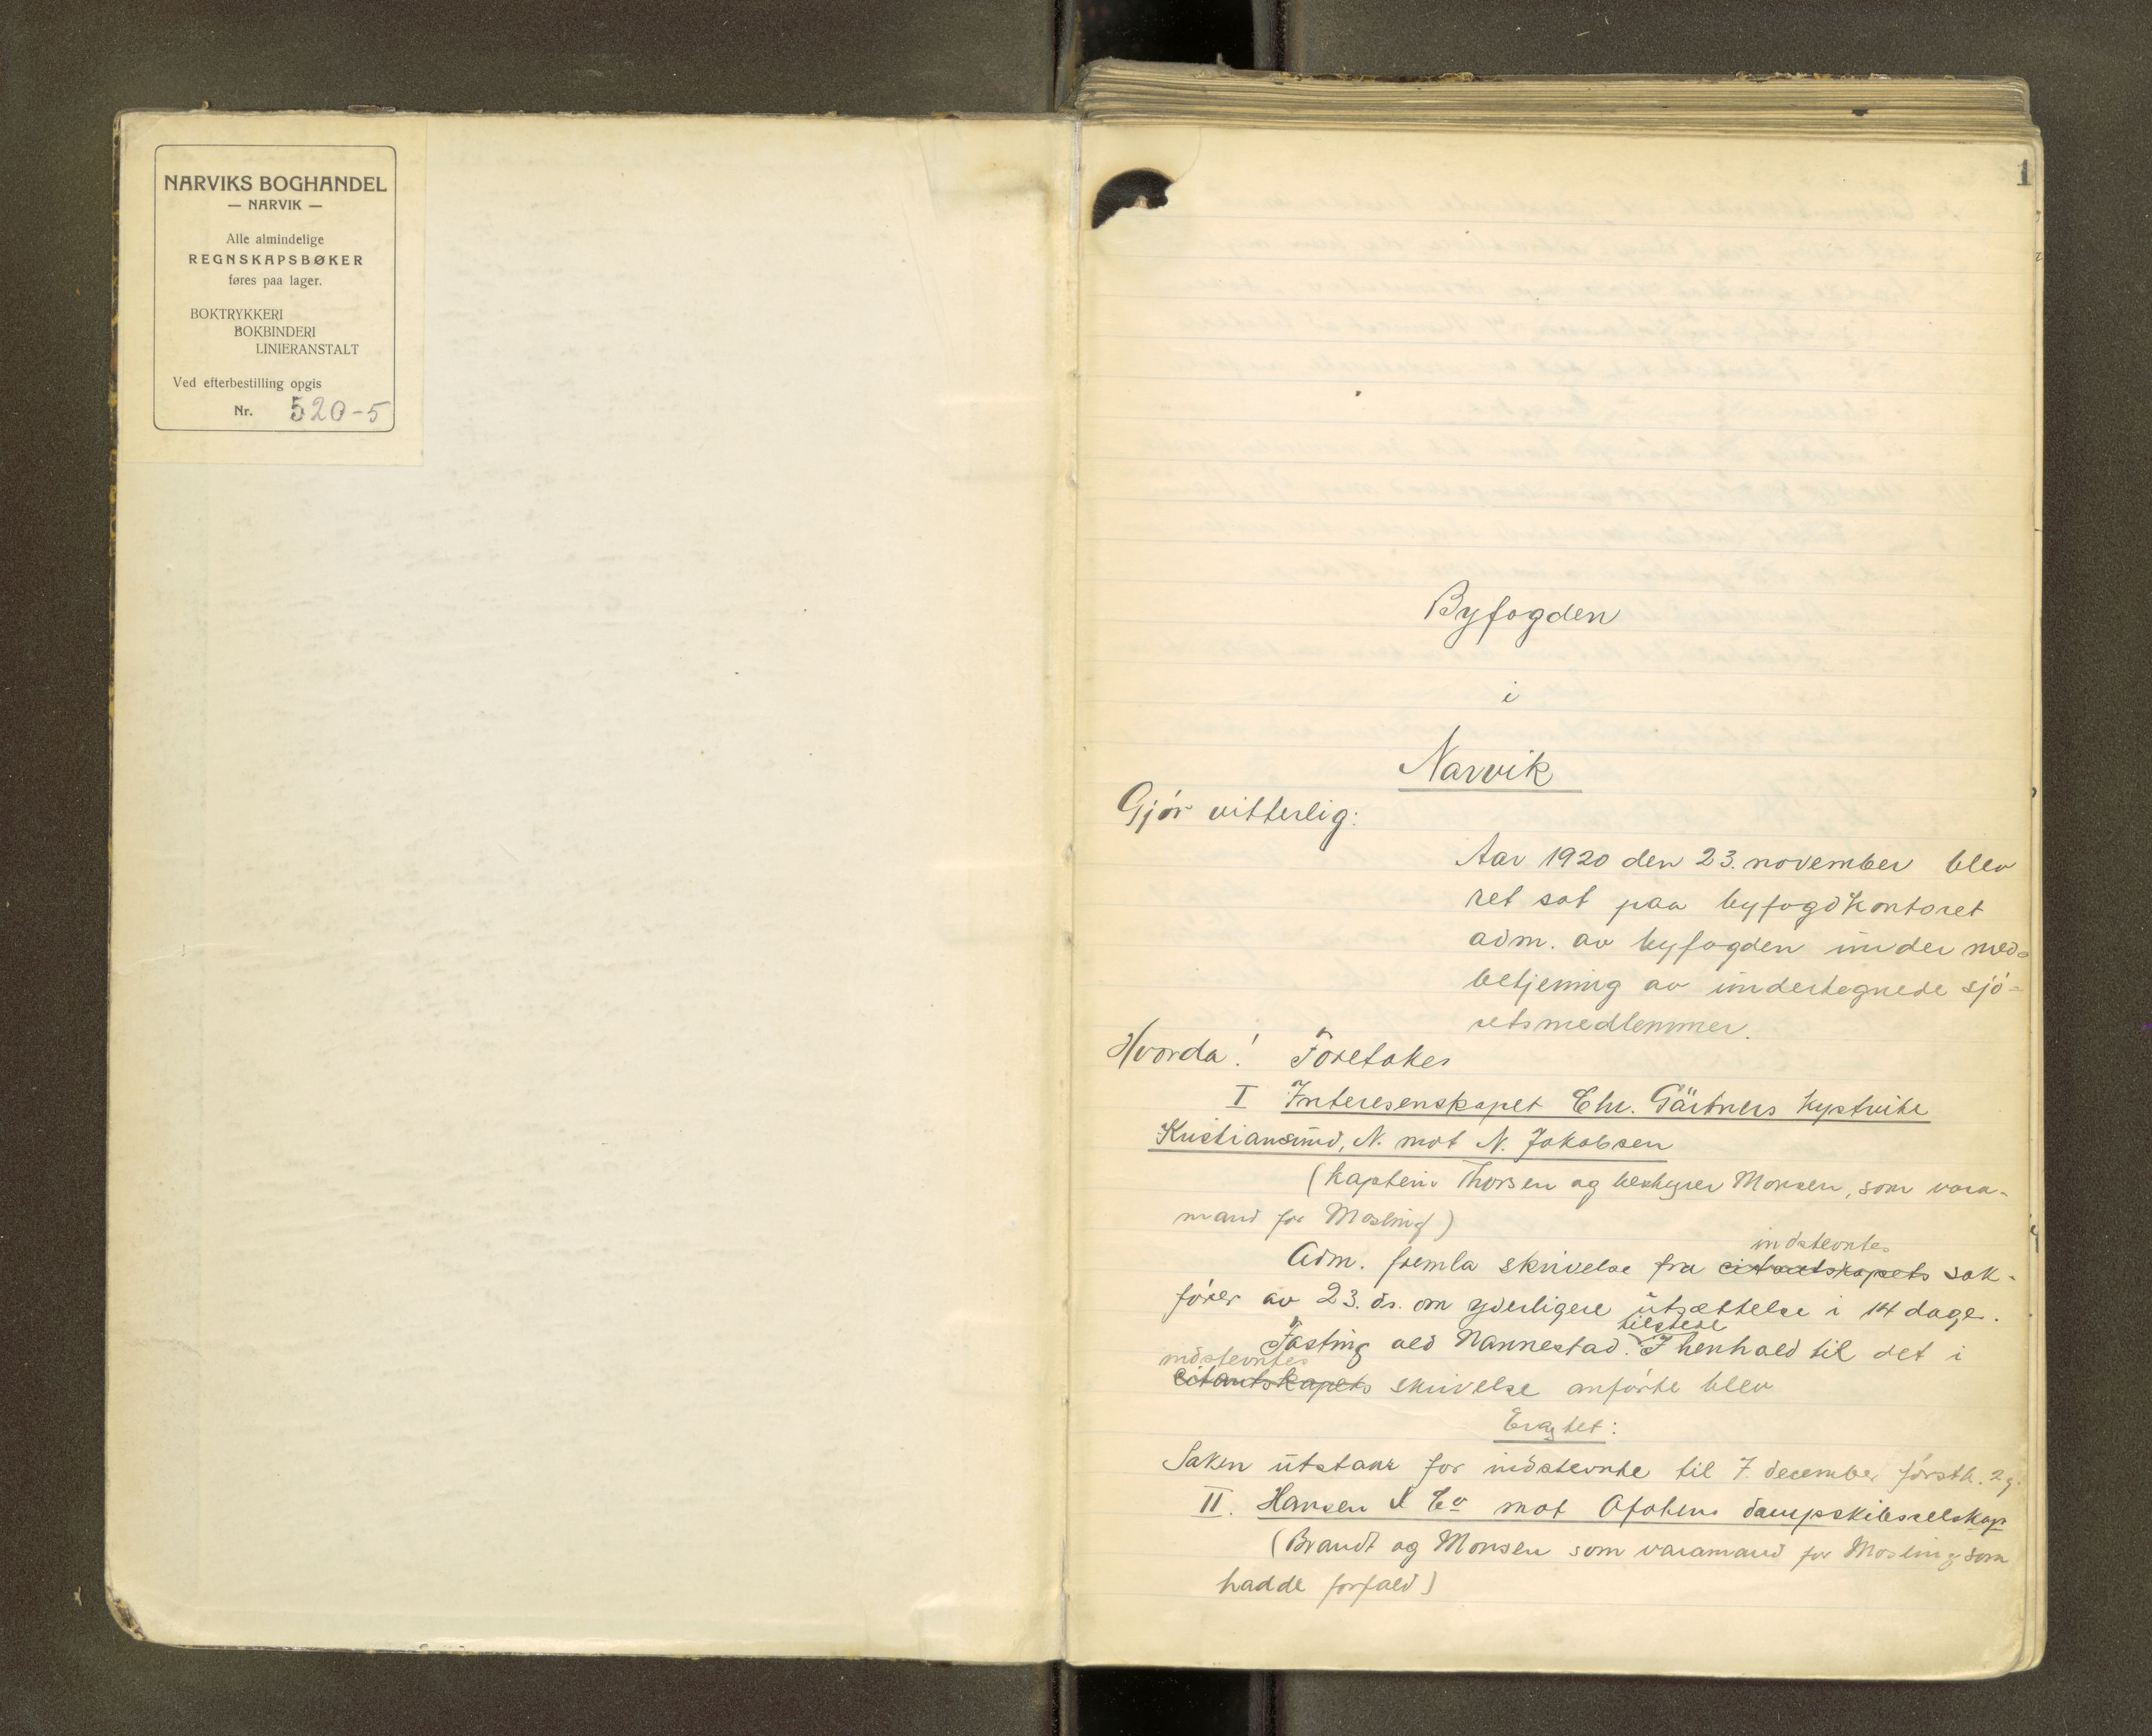 NARVIKS BOGHANDEL
— NARVIK —
Alle almindelige
REGNSKAPSBØKER
føres paa lager.
BOKTRYKKERI
BOKBINDERI
LINIERANSTALT
Ved efterbestilling opgis
Nr. 520-5
1
Byfogden
i
Narvik
Gjør vitterlig:
Aar 1920 den 23. november blev
ret sat paa byfogdkontoret
adm. av byfogden under med-
betjening av undertegnede sjø-
retsmedlemmer.
Hvorda! Foretakes
I Interesenskapet Chr. Gärtners
Kristiansund, N. mot N. Jakobsen
(kaptein Thorsen og bestyrer Monsen, som vara-
mand for Mosling)
indstevntes
Adm. fremla skrivelse fra citantskapets sak-
fører av 23. ds. om yderligere utsættelse i 14 dage.
tilstede
Fasting ved Nannestad. I henhold til det i
indstevntes
citantskapets skrivelse anførte blev
Eragtet:
Saken utstaar for indstevnte til 7. december førstk. 2g.
II. Hansen & Co mot Ofotens dampskibsselskap
(Brandt og Monsen som varamand for Mosling som
hadde forfald)